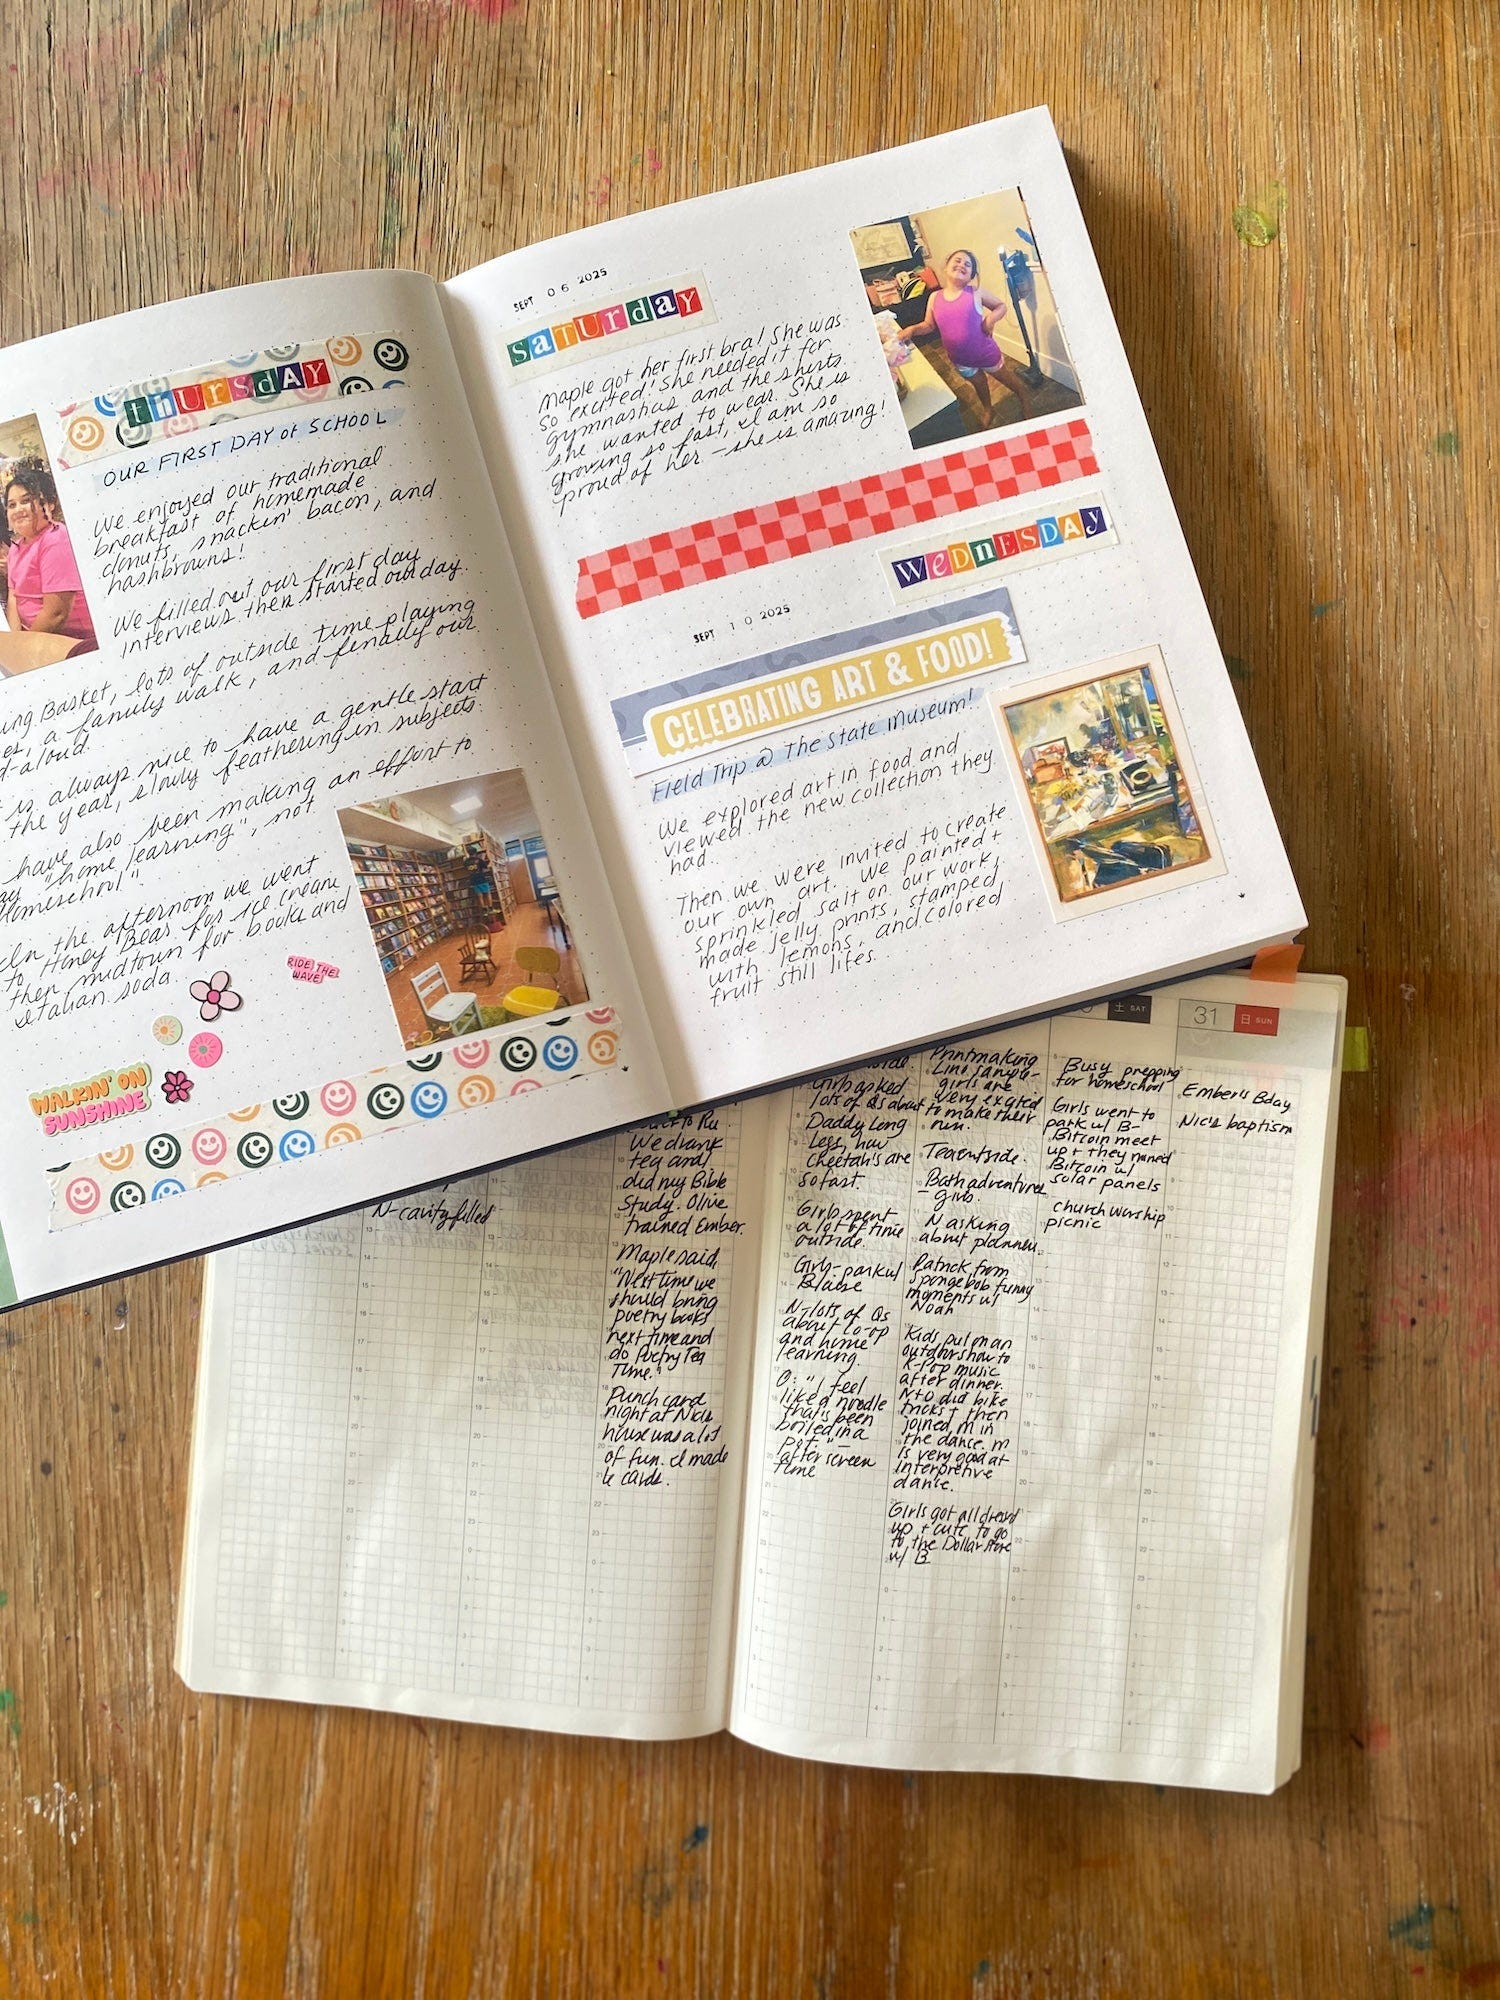 thursdAY
OUR FIRST DAY of SCHOOL
We enjoyed our traditional
breakfast of homemade
donuts, snackin' bacon, and
hashbrowns!
We filled out our first day
interviews then started our day.
Basket, lots of outside time playing
a family walk, and finally our
d-aloud.
is always nice to have a gentle start
the year, slowly feathering in subjects.
have also been making an effort to
ay "home learning", not
Homeschool"
In the afternoon we went
to Honey Bear for ice cream
then midtown for books and
italian soda.
RIDE THE
WAVE
WALKIN' ON
SUNSHINE
SEPT 06 2025
SaTUrday
Maple got her first bra! She was
so excited! She needed it for
gymnastics and the shirts
she wanted to wear. She is
growing so fast, I am so
proud of her - she is amazing!
WednESDAy
SEPT 10 2025
CELEBRATING ART & FOOD!
Field Trip @ The State Museum!
We explored art in food and
viewed the new collection they
had.
Then we were invited to create
our own art. We painted +
sprinkled salt on our work,
made jelly prints, stamped
with lemons, and colored
fruit still lifes.
N- cavity filled
We drank
tea and
did my Bible
Study. Olive
trained Ember.
Maple said,
"Next time we
should bring
poetry books
next time and
do Poetry Tea
Time."
Punch card
night at Nick's
house was a lot
of fun. I made
6 cards.
Girls asked
lots of Qs about
Daddy Long
Legs, how
cheetah's are
so fast.
Girls spent
a lot of time
outside.
Girls - park w/
Blaise
N - lots of Qs
about co-op
and home
learning.
O: "I feel
like a noodle
that's been
boiled in a
pot." -
after screen
time
Printmaking
Lino sample -
girls are
very excited
to make their
own.
Tea outside.
Bath adventures
- girls.
N asking
about planner.
Patrick from
Spongebob funny
moments w/
Noah
Kids put on an
outdoor show to
K-Pop music
after dinner.
N+O did bike
tricks + then
joined M in
the dance. M
is very good at
interpretive
dance.
Girls got all dressed
up + cute to go
to the Dollar store
w/ B
土 SAT
Busy prepping
for homeschool
Girls went to
park w/ B-
Bitcoin meet
up + they mined
Bitcoin w/
solar panels
church worship
picnic
31 日 SUN
Ember's Bday
Nic's baptism